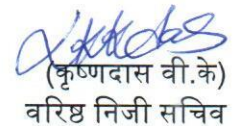 (कृष्णदास वी.के)
वरिष्ठ निजी सचिव